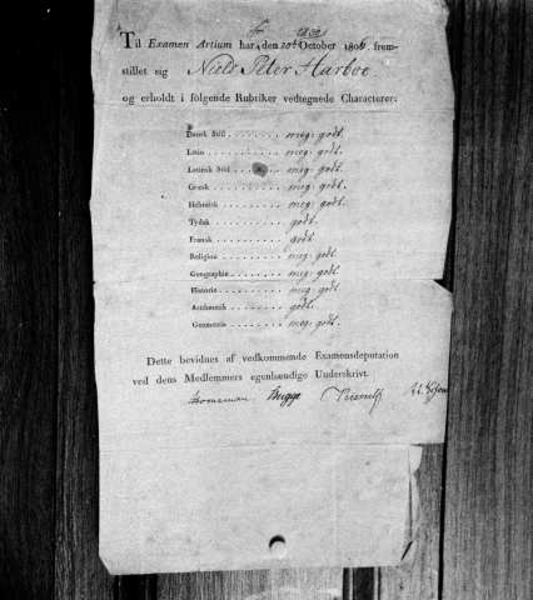 Til Examen Artium har, den 20de October 1806 frem-
stillet sig Niels Peter Harboe.
og erholdt i følgende Rubriker vedtegnede Characterer:
Dansk Stil . . . . . . . . meg: godt.
Latin . . . . . . . . . . meg: godt.
Latinsk Stil . . . . . . . meg: godt.
Græsk . . . . . . . . . . meg: godt.
Hebraisk . . . . . . . . . meg: godt.
Tydsk . . . . . . . . . . godt.
Fransk . . . . . . . . . . godt
Religion . . . . . . . . . meg: godt.
Geographie . . . . . . . . meg: godt.
Historie . . . . . . . . . meg: godt.
Arithmetik . . . . . . . . godt.
Geometrie . . . . . . . . meg: godt.
Dette bevidnes af vedkommende Examensdeputation
ved dens Medlemmers egenhændige Underskrivt.
Hornemann Bugge